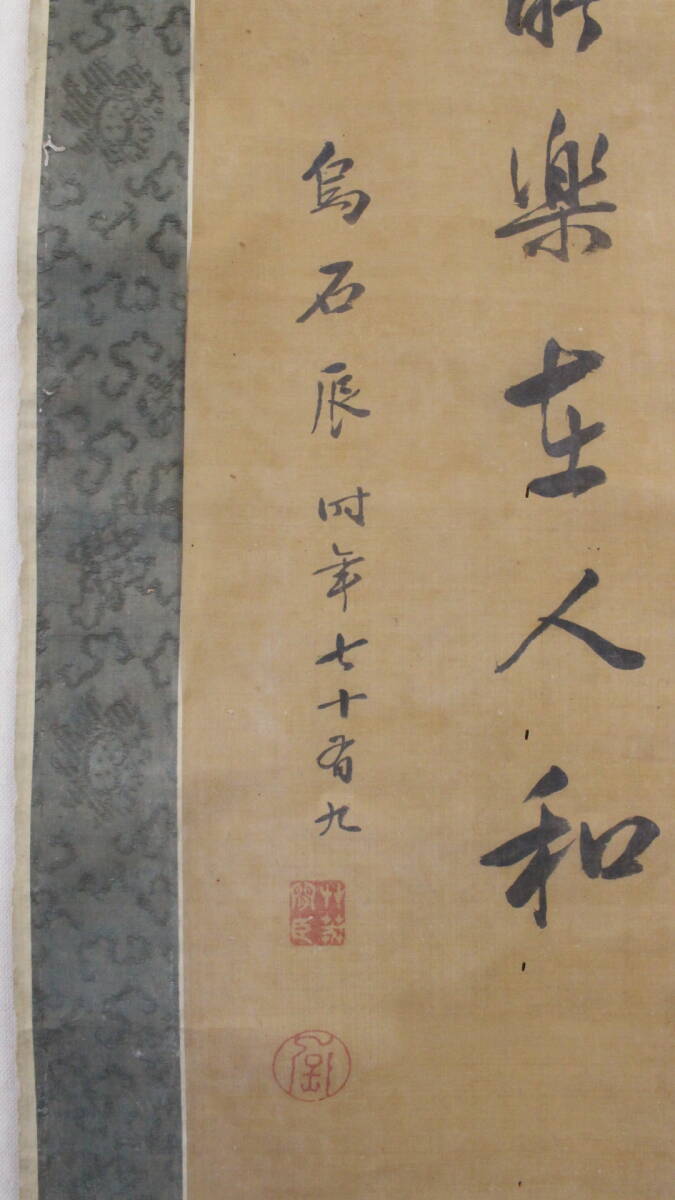 楽在人和
烏石辰时年七十有九